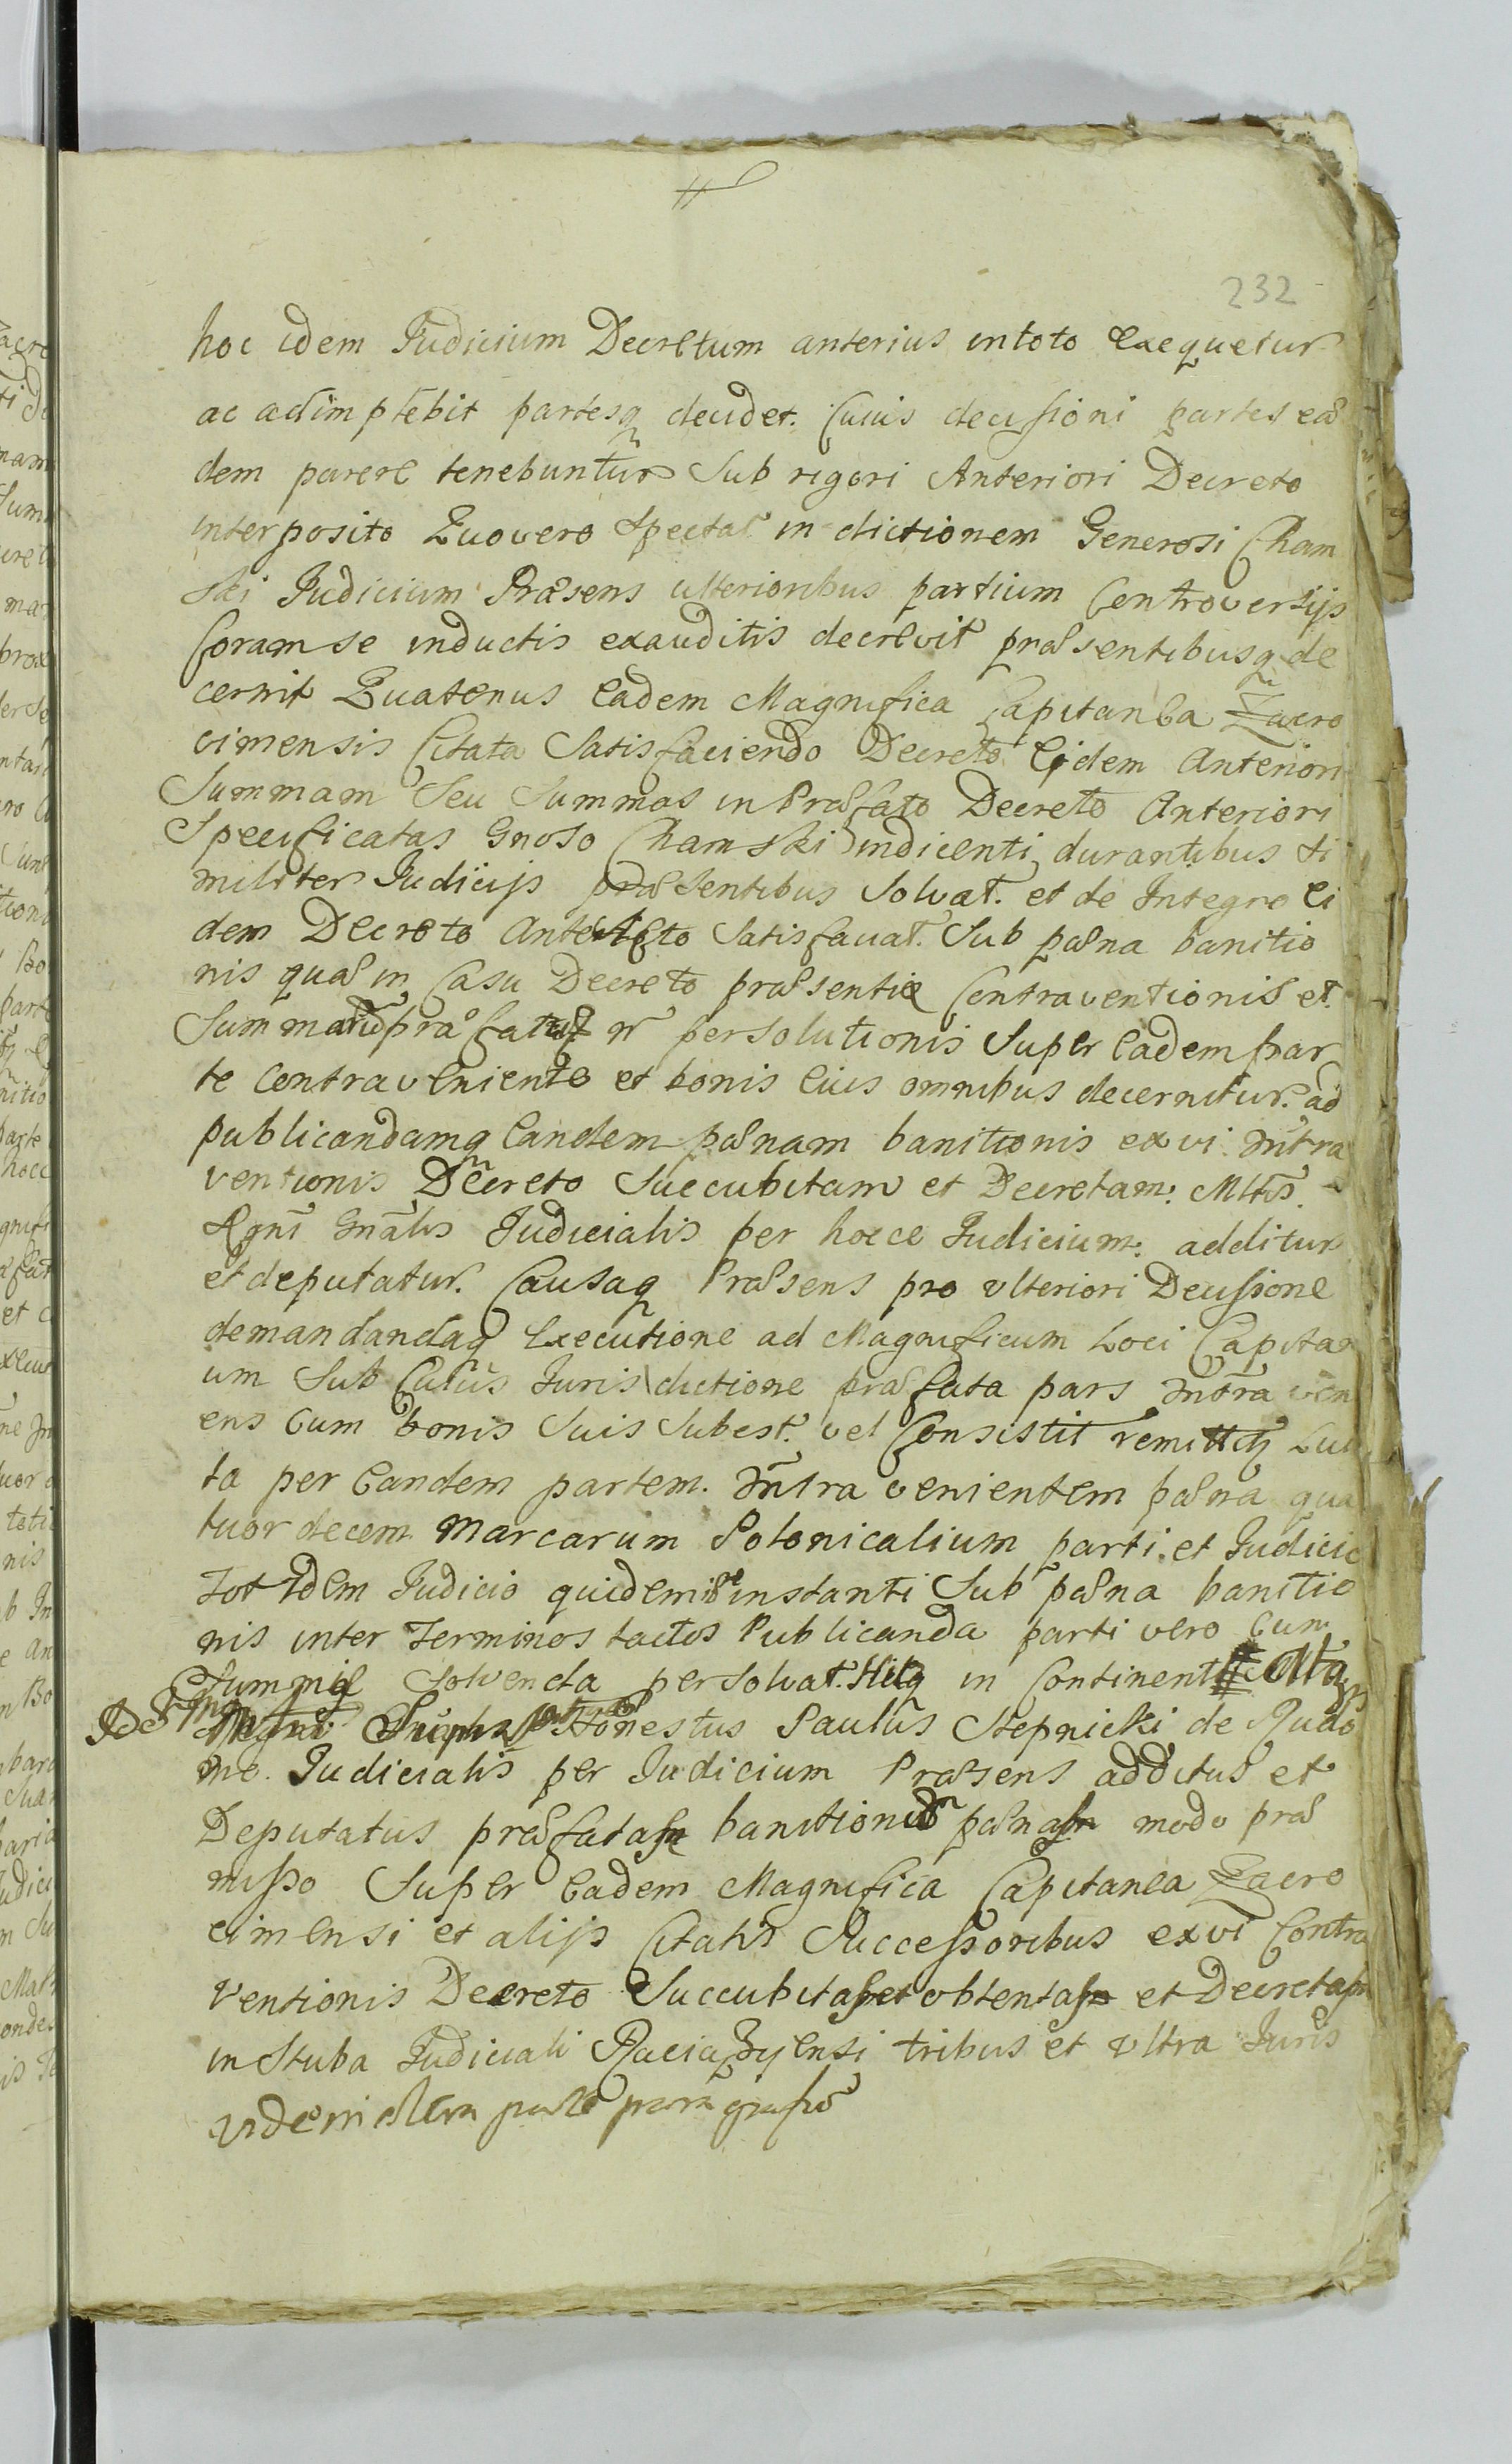 232
hoc idem Judicium Decretum anterius in toto exequetur
ac adimplebit partesq decidet. Cuius decisioni partes eæ
dem parere tenebuntur Sub rigori Anteriori Decreto
interposito Quovero Spectat in dictionem Generosi Cham
ski Judicium Præsens ulterioribus partium Controversijs
Coram se inductis exauditis decrevit præsentibusq de
cernit Quatenus eadem Magnifica Capitanea Zacro
cimensis Citata Satisfaciendo Decreto Eidem Anteriori
Summam Seu Summas in Præfato Decreto Anteriori
Specificatas Gnoso Chamski indicenti durantibus si
militer Judicijs præsentibus Solvat. et de Integro Ei
dem Decreto Satisfaciat. Sub pæna banitio
nis quæ in Casu Decreto præsenti Contraventionis et
Summarū præfatar n persolutionis Super eadem par
te contraveniente et bonis eius omnibus decernitur. ad
publicandamq Eandem pænam banitionis ex vi Intra
ventionis Decreto Succubitam et Decretam: Mltis.
Rgni Gnalis Judicialis per hocce Judicium: additur
et deputatur. Causaq Præsens pro ulteriori Decisione
demandandaq Executione ad Magnificum Loci Capitan
um Sub Cuius Jurisdictione præfata pars Intra ven
ens Cum bonis Suis Subest. vel Consistit remittitq Lui
ta per Eandem partem. Intra venientem pæna qua
tuor decem Marcarum Polonicalium parti et Judicio
Tot idem Judicio quidem instanti Sub pæna banitio
nis inter Terminos tactos Publicanda parti vero Cum
Summis Solvenda persolvat. Hicq in Continenti
Honestus Paulus Stepnicki de Rado
Judicialis per Judicium Præsens additus et
Deputatus præfatam banitionis pænam modo præ
misso Super Eadem Magnifica Capitanea Zacro
cimensi et alijs Citatis Successoribus ex vi Contra
ventionis Decreto Succubitam et obtentam et Decretam
in Stuba Judiciali Raciążyensi tribus et ultra Juris
paragrafō